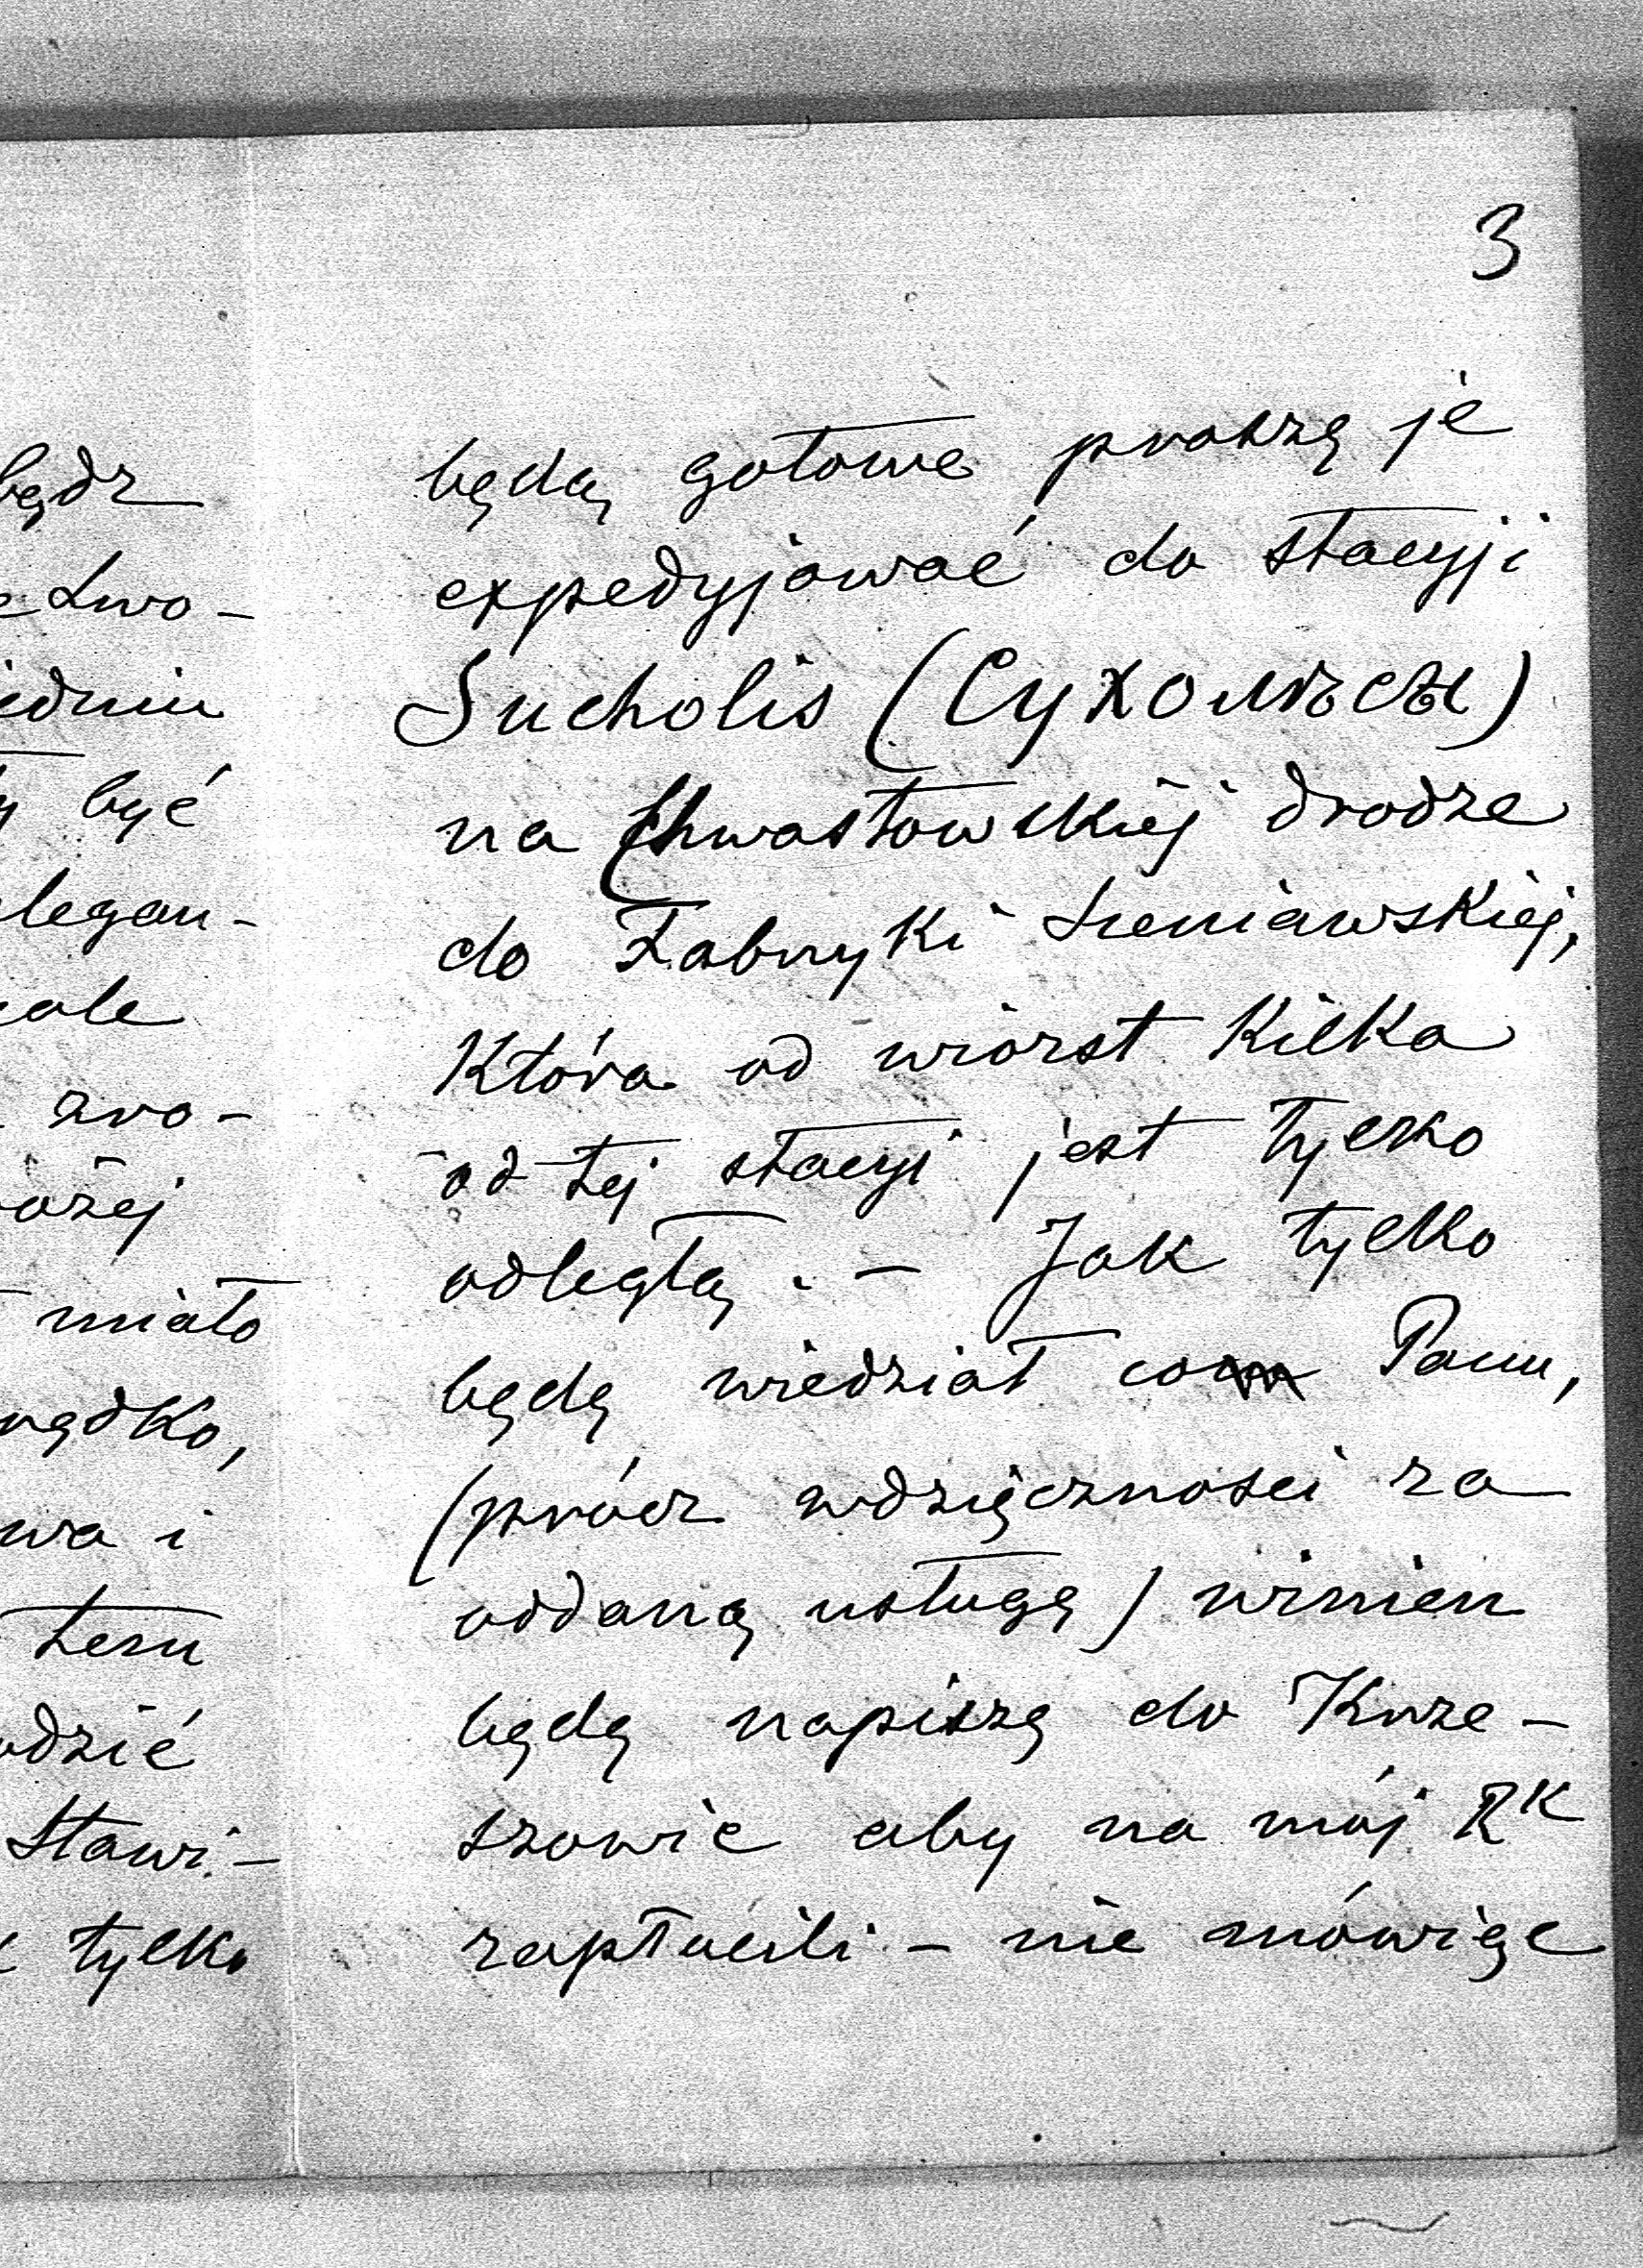 3
będą gotowe proszę je
expedyjować do stacyji
Sucholis (Сухолѣсы)
na Chwastowskiéj drodze
do Fabryki Sieniawskiéj,
Która od wiorst Kilka
od tej stacyi jest tylko
odległą. – Jak tylko
będę wiedział co Panu,
(prócz wdzięczności za
oddaną usługę) winien
będę napiszę do Krze-
szowic aby na mój Rk
zapłacili – nie mówiąc
bądz
Lwo-
być
legan-
zro-
miało
wa i
temu
Stawi-
tylko